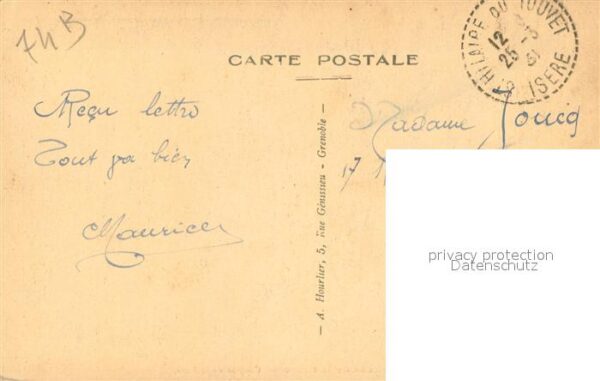 74B
CARTE POSTALE
St HILAIRE DU TOUVET
12
25
31
ISERE
Reçu lettre
Tout va bien
Maurice
Madame
17
— A. Hourlier, 5, Rue Génissieu - Grenoble —
privacy protection
Datenschutz